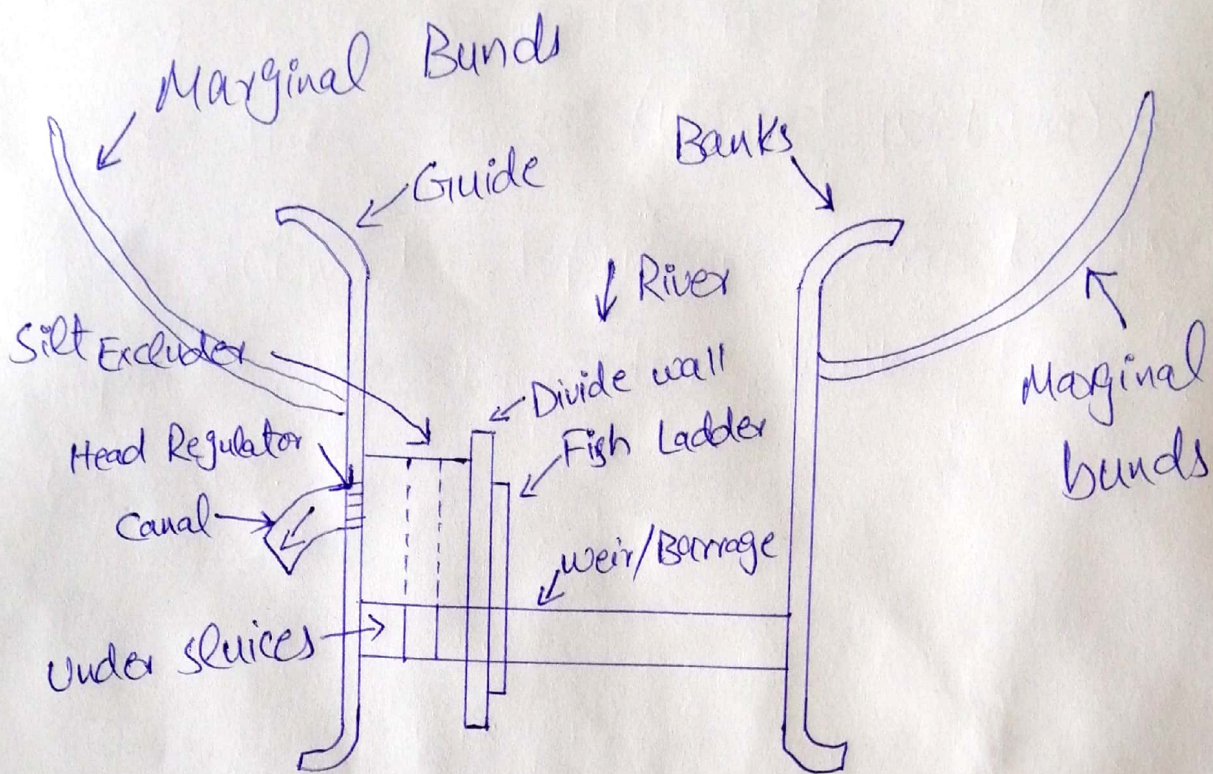 Marginal Bunds
Guide
Banks
River
Silt Excluder
Divide wall
Fish Ladder
Head Regulator
Canal
Weir/Barrage
Under sluices
Marginal
bunds